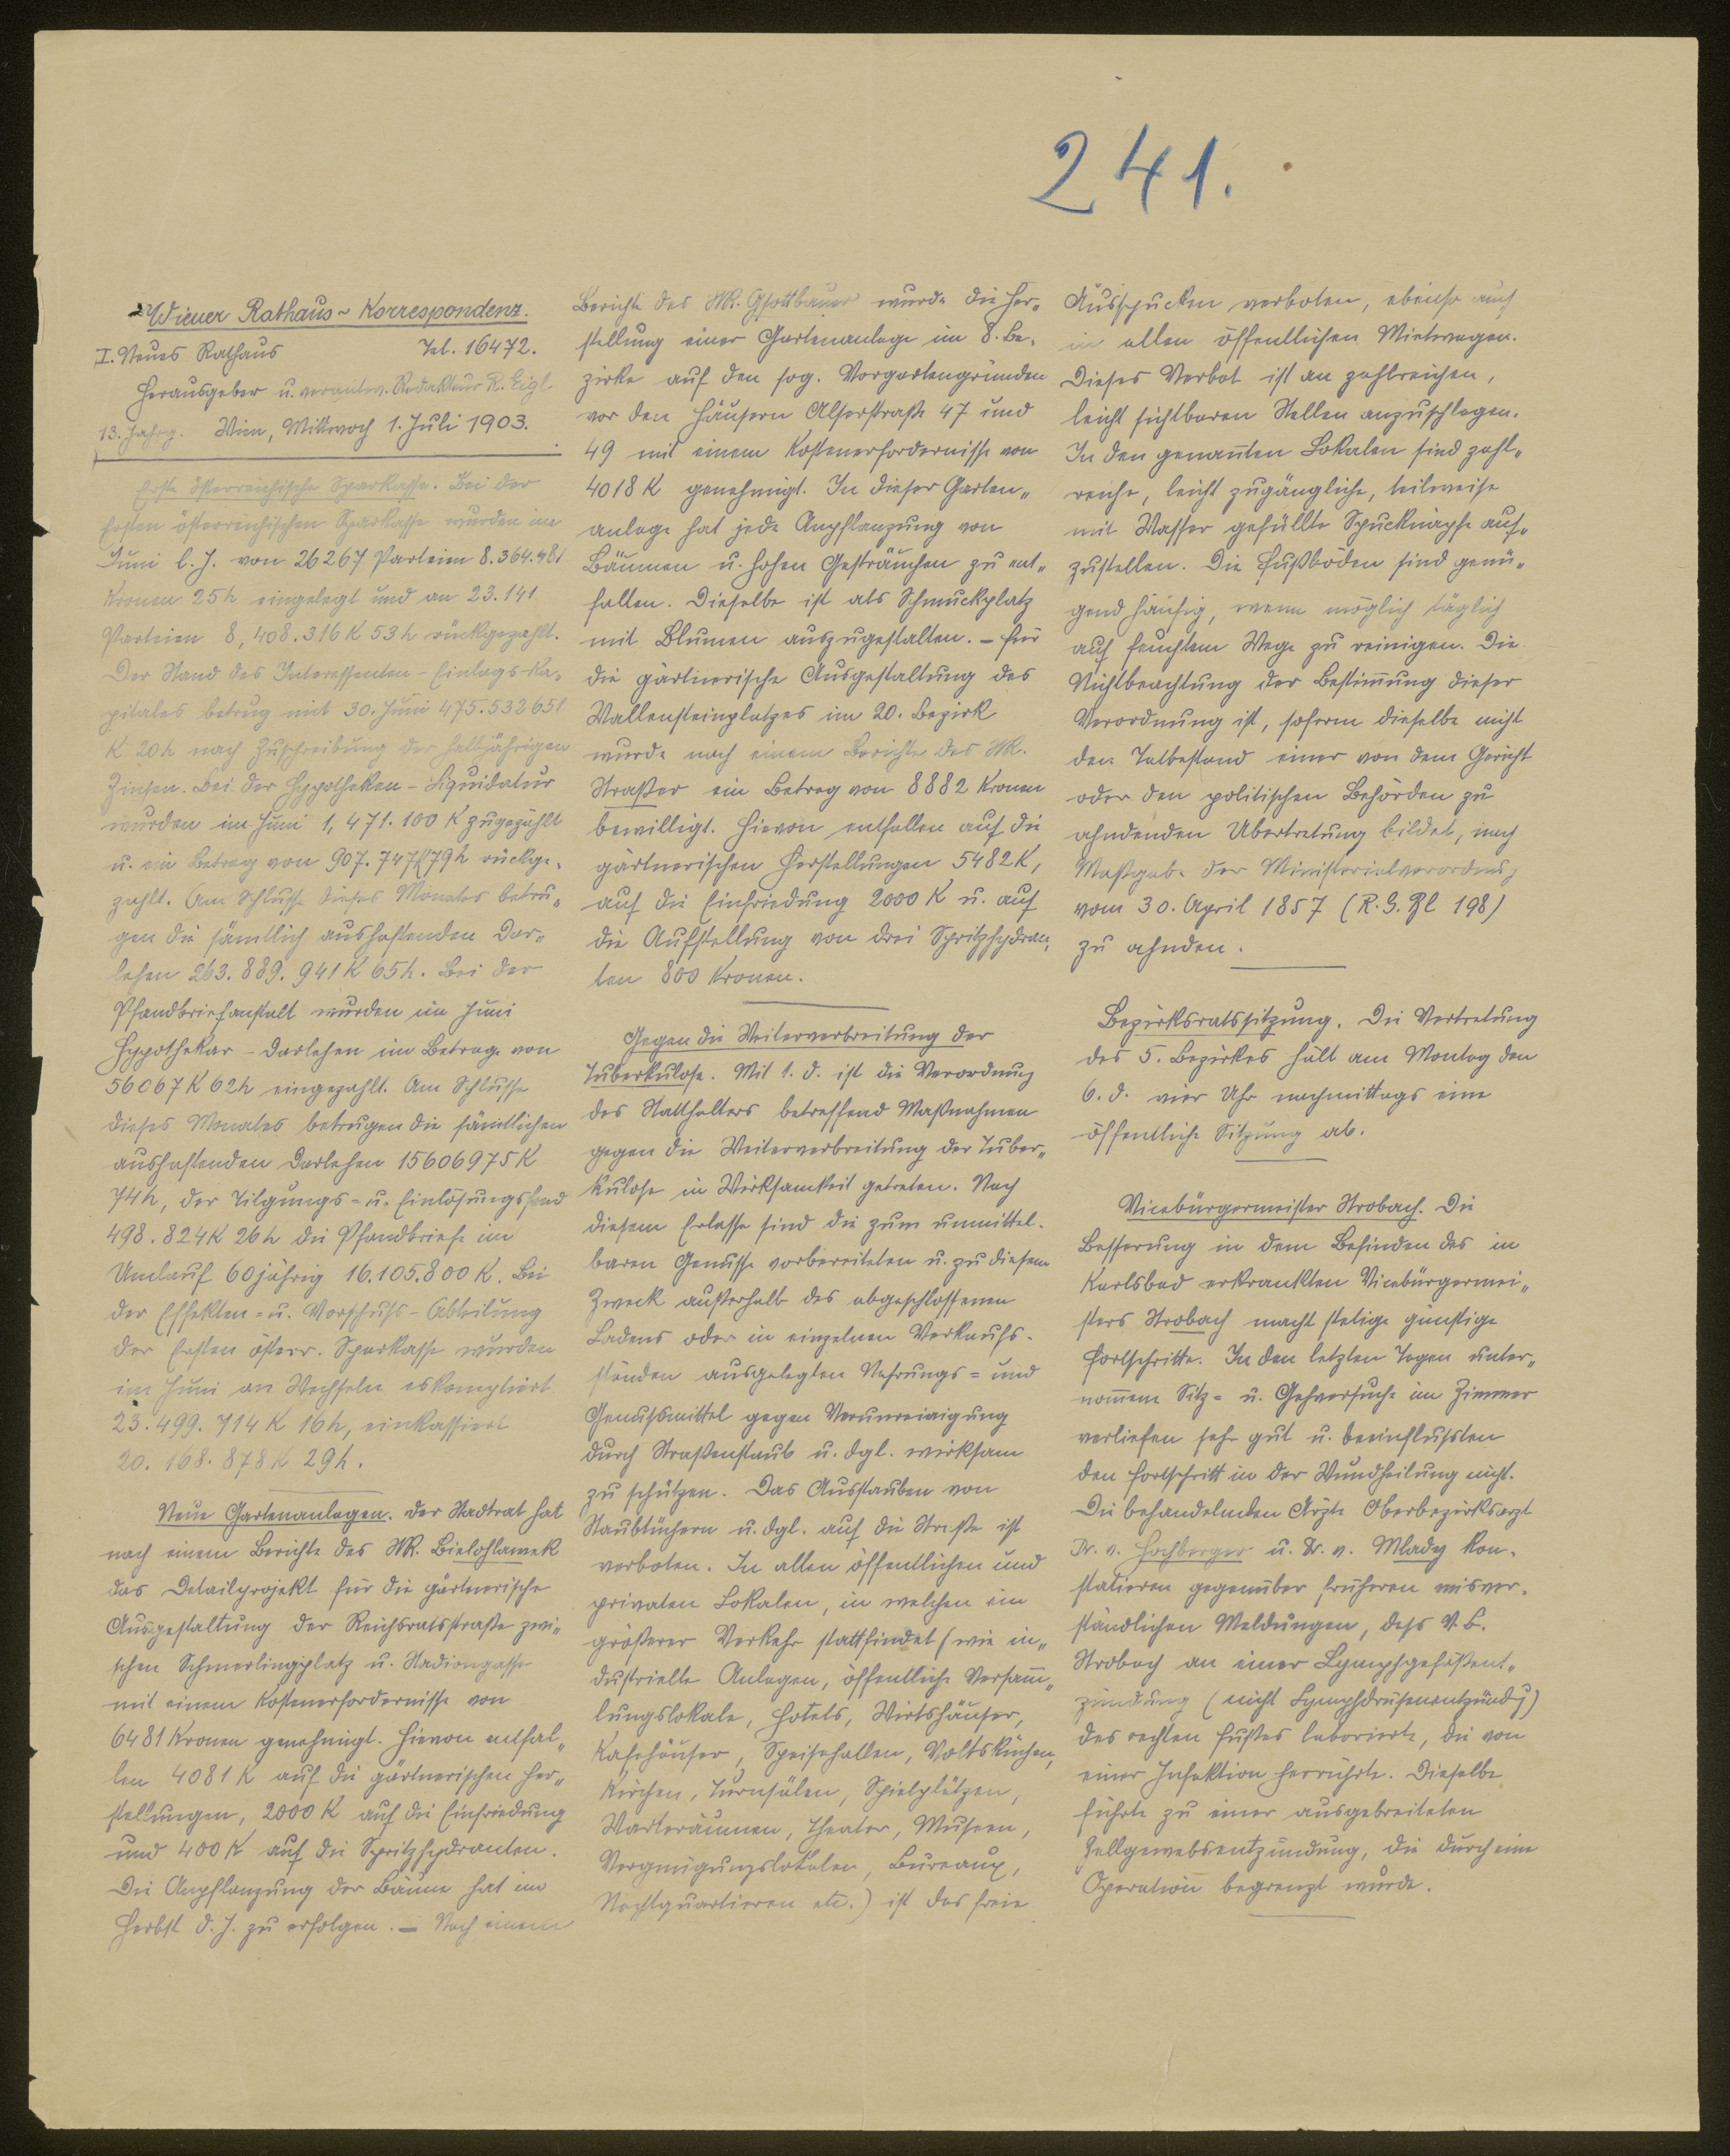 241.
Wiener Rathaus-Korrespondenz.
I. Neues Rathaus Tel. 16472.
Herausgeber u. verantw. Redakteur R. Eigl
13. Jahrg. Wien, Mittwoch 1. Juli 1903.
Erste österreichische Sparkasse. Bei der
Ersten österreichischen Sparkasse wurden im
Juni l. J. von 26267 Parteien 8.364.481
Kronen 25h eingelegt und an 23.141
Parteien 8,408.316 K 53h rückgezahlt.
Der Stand des Interessenten-Einlags-Ka„
pitales betrug mit 30. Juni 475.532651
K 20h nach Zuschreibung der halbjährigen
Zinsen. Bei der Hypotheken-Liquidatur
wurden im Juni 1,471.100 K zugezählt
u. ein Betrag von 907.747K79h rückge-
zahlt. Am Schlusse dieses Monates betru„
gen die sämtlich aushaftenden Dar„
lehen 263.889.941 K 65h. Bei der
Pfandbriefanstalt wurden im Juni
Hypothekar-Darlehen im Betrage von
56067 K 62h eingezahlt. Am Schlusse
dieses Monates betrugen die sämtlichen
aushaftenden Darlehen 15606975K
74h, der Tilgungs- u. Einlösungsfond
498.824K 26h die Pfandbriefe im
Umlauf 60jährig 16.105.800 K. Bei
der Effekten- u. Vorschuß-Abteilung
der Ersten österr. Sparkasse wurden
im Juni an Wechseln eskomptiert
23.499.714 K 16h, einkassiert
20.168.878K 29h.
Neue Gartenanlagen. Der Stadtrat hat
nach einem Berichte des StR. Bielohlawek
das Detailprojekt für die gärtnerische
Ausgestaltung der Reichsratsstraße zwi„
schen Schmerlingplatz u. Stadiongasse
mit einem Kostenerfordernisse von
6481 Kronen genehmigt. Hievon entfal„
len 4081 K auf die gärtnerischen Her„
stellungen, 2000 K auf die Einfriedung
und 400 K auf die Spritzhydranten.
Die Anpflanzung der Bäume hat im
Herbst d. J. zu erfolgen. – Nach einem
Berichte des StR. Gsottbauer wurde die Her„
stellung einer Gartenanlage im 8. Be-
zirke auf den sog. Vorgartengründen
vor den Häusern Alserstraße 47 und
49 mit einem Kostenerfordernisse von
4018 K genehmigt. In dieser Garten„
anlage hat jede Anpflanzung von
Bäumen u. hohen Gesträuchen zu ent„
fallen. Dieselbe ist als Schmuckplatz
mit Blumen auszugestalten. – Für
die gärtnerische Ausgestaltung des
Wallensteinplatzes im 20. Bezirk
wurde nach einem Berichte des StR.
Straßer ein Betrag von 8882 Kronen
bewilligt. Hievon entfallen auf die
gärtnerischen Herstellungen 5482K,
auf die Einfriedung 2000 K u. auf
die Aufstellung von drei Spritzhydran„
ten 800 Kronen.
Gegen die Weiterverbreitung der
Tuberkulose. Mit 1. d. ist die Verordnung
des Statthalters betreffend Maßnahmen
gegen die Weiterverbreitung der Tuber„
kulose in Wirksamkeit getreten. Nach
diesem Erlasse sind die zum unmittel-
baren Genusse vorbereiteten u. zu diesem
Zweck außerhalb des abgeschlossenen
Ladens oder in einzelnen Verkaufs-
ständen ausgelegten Nahrungs- und
Genußmittel gegen Verunreinigung
durch Straßenstaub u. dgl. wirksam
zu schützen. Das Ausstauben von
Staubtüchern u. dgl. auf die Straße ist
verboten. In allen öffentlichen und
privaten Lokalen, in welchen ein
größerer Verkehr stattfindet (wie in„
dustrielle Anlagen, öffentliche Versam̅„
lungslokale, Hotels, Wirtshäuser,
Kafehäuser, Speisehallen, Volksküchen,
Kirchen, Turnsälen, Spielplätzen,
Warteräumen, Theater, Museen,
Vergnügungslokalen, Bureaux,
Nachtquartieren etc.) ist das freie
Ausspucken verboten, ebenso auch
in allen öffentlichen Mietwagen.
Dieses Verbot ist an zahlreichen,
leicht sichtbaren Stellen anzuschlagen.
In den genan̅ten Lokalen sind zahl„
reiche, leicht zugängliche, teilweise
mit Wasser gefüllte Spucknäpfe auf„
zustellen. Die Fußböden sind genü„
gend häufig, wenn möglich täglich
auf feuchtem Wege zu reinigen. Die
Nichtbeachtung der Bestim̅ung dieser
Verordnung ist, soferne dieselbe nicht
den Tatbestand einer von dem Gericht
oder den politischen Behörden zu
ahndenden Übertretung bildet, nach
Maßgabe der Ministerialverordnung
vom 30. April 1857 (R. G. Bl 198)
zu ahnden.
Bezirksratssitzung. Die Vertretung
des 5. Bezirkes hält am Montag den
6. d. vier Uhr nachmittags eine
öffentliche Sitzung ab.
Vicebürgermeister Strobach. Die
Besserung in dem Befinden des in
Karlsbad erkrankten Vicebürgermei„
sters Strobach macht stetige günstige
Fortschritte. In den letzten Tagen unter„
nom̅ene Sitz- u. Gehversuche im Zimmer
verliefen sehr gut u. beeinflußten
den Fortschritt in der Wundheilung nicht.
Die behandelnden Ärzte Oberbezirksarzt
Dr. v. Hochberger u. Dr. v. Mlady kon-
statieren gegenüber früheren misver-
ständlichen Meldungen, daß V. B.
Strobach an einer Lymphgefäßent„
zündung (nicht Lymphdrüsenentzündg)
des rechten Fußes laborierte, die von
einer Infektion herrührte. Dieselbe
führte zu einer ausgebreiteten
Zellgewebsentzündung, die durch eine
Operation begrenzt wurde.